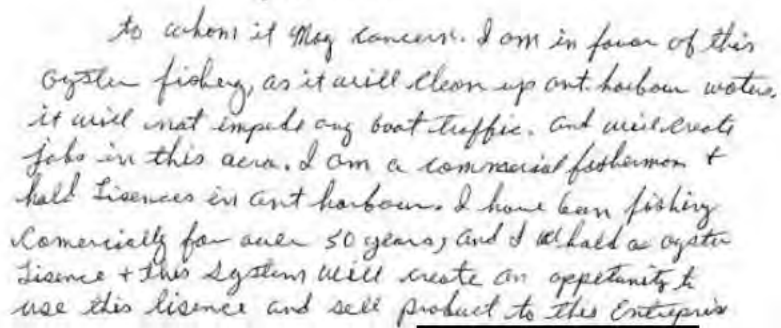 to whom it May concern. I am in favor of this
oyster fishery, as it will clean up ant. harbour waters.
it will not impede any boat traffic. and will create
jobs in this aera. I am a commercial fisherman +
hold Lisences in ant harbour. I have been fishing
Comercially for over 50 years, and I hold a oyster
Lisence + this system will create an oppetunity to
use this lisence and sell product to this Entreprise